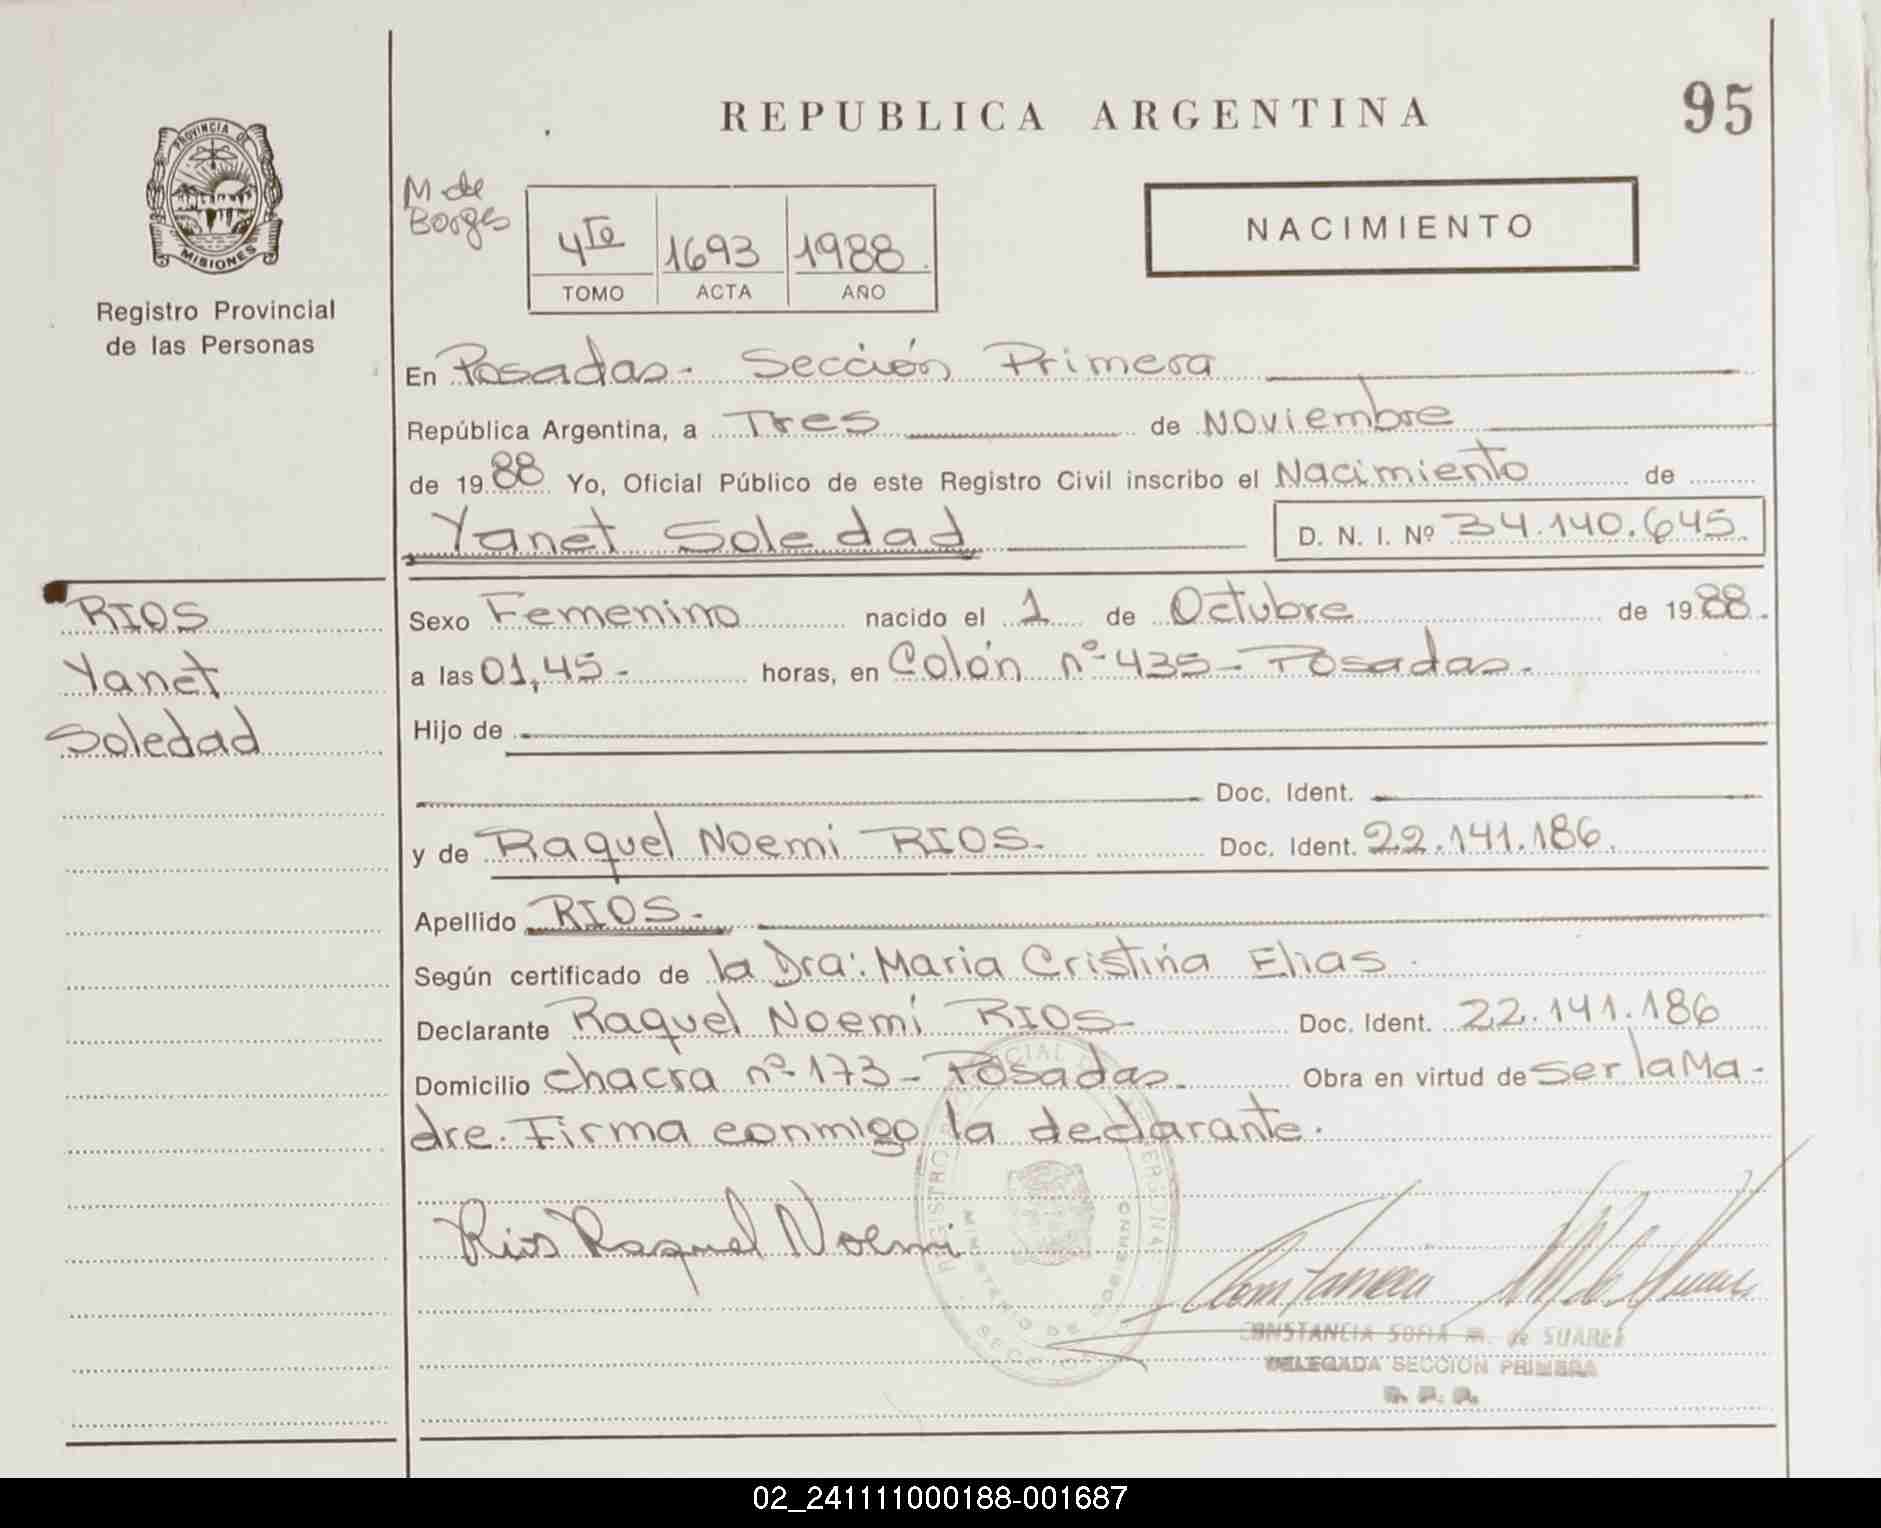 REPUBLICA ARGENTINA
95
PROVINCIA DE
MISIONES
Registro Provincial
de las Personas
M de
Borges
4to 1693 1988
TOMO ACTA AÑO
NACIMIENTO
En Posadas - Sección Primera
República Argentina, a Tres de Noviembre
de 1988 Yo, Oficial Público de este Registro Civil inscribo el Nacimiento de
Yanet Soledad D. N. I. Nº 34.140.645
RIOS
Yanet
Soledad
Sexo Femenino nacido el 1 de Octubre de 1988.
a las 01,45- horas, en Colón nº 435 - Posadas.
Hijo de
Doc. Ident.
y de Raquel Noemi RIOS- Doc. Ident. 22.141.186.
Apellido RIOS.-
Según certificado de la Dra: Maria Cristina Elias.
Declarante Raquel Noemí RIOS- Doc. Ident. 22.141.186
Domicilio chacra nº 173 - Posadas. Obra en virtud de Ser la Ma-
dre. Firma conmigo la declarante.
Rios Raquel Noemi
MINISTERIO DE GOBIERNO
CONSTANCIA SOFIA M. de SUAREZ
DELEGADA SECCION PRIMERA
R. P. P.
02_241111000188-001687